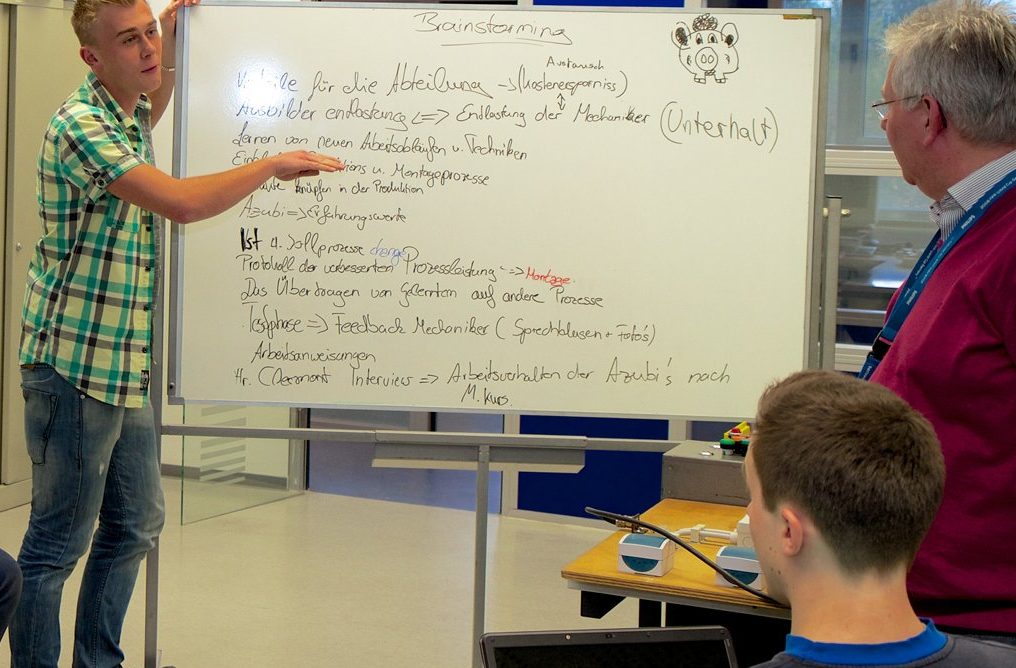 Brainstorming
Austausch
für die Abteilung -> (Kostenersparniss)
Ausbilder endlastung <=> Endlastung der Mechaniker (Unterhalt)
Lernen von neuen Abeitsabläufen u. Techniken
u. Montageprozesse
knüpfen in der Produktion
Azubi => Erfahrungswerte
Ist & Sollprozesse change
Protokoll der verbesserten Prozessleistung => Montage
Das Übertragen von Gelerntem auf andere Prozesse
Testphase => Feedback Mechaniker (Sprechblasen + Foto's)
Arbeitsanweisungen
Hr. Clermont Interview => Arbeitsverhalten der Azubi's nach
M. Kurs.